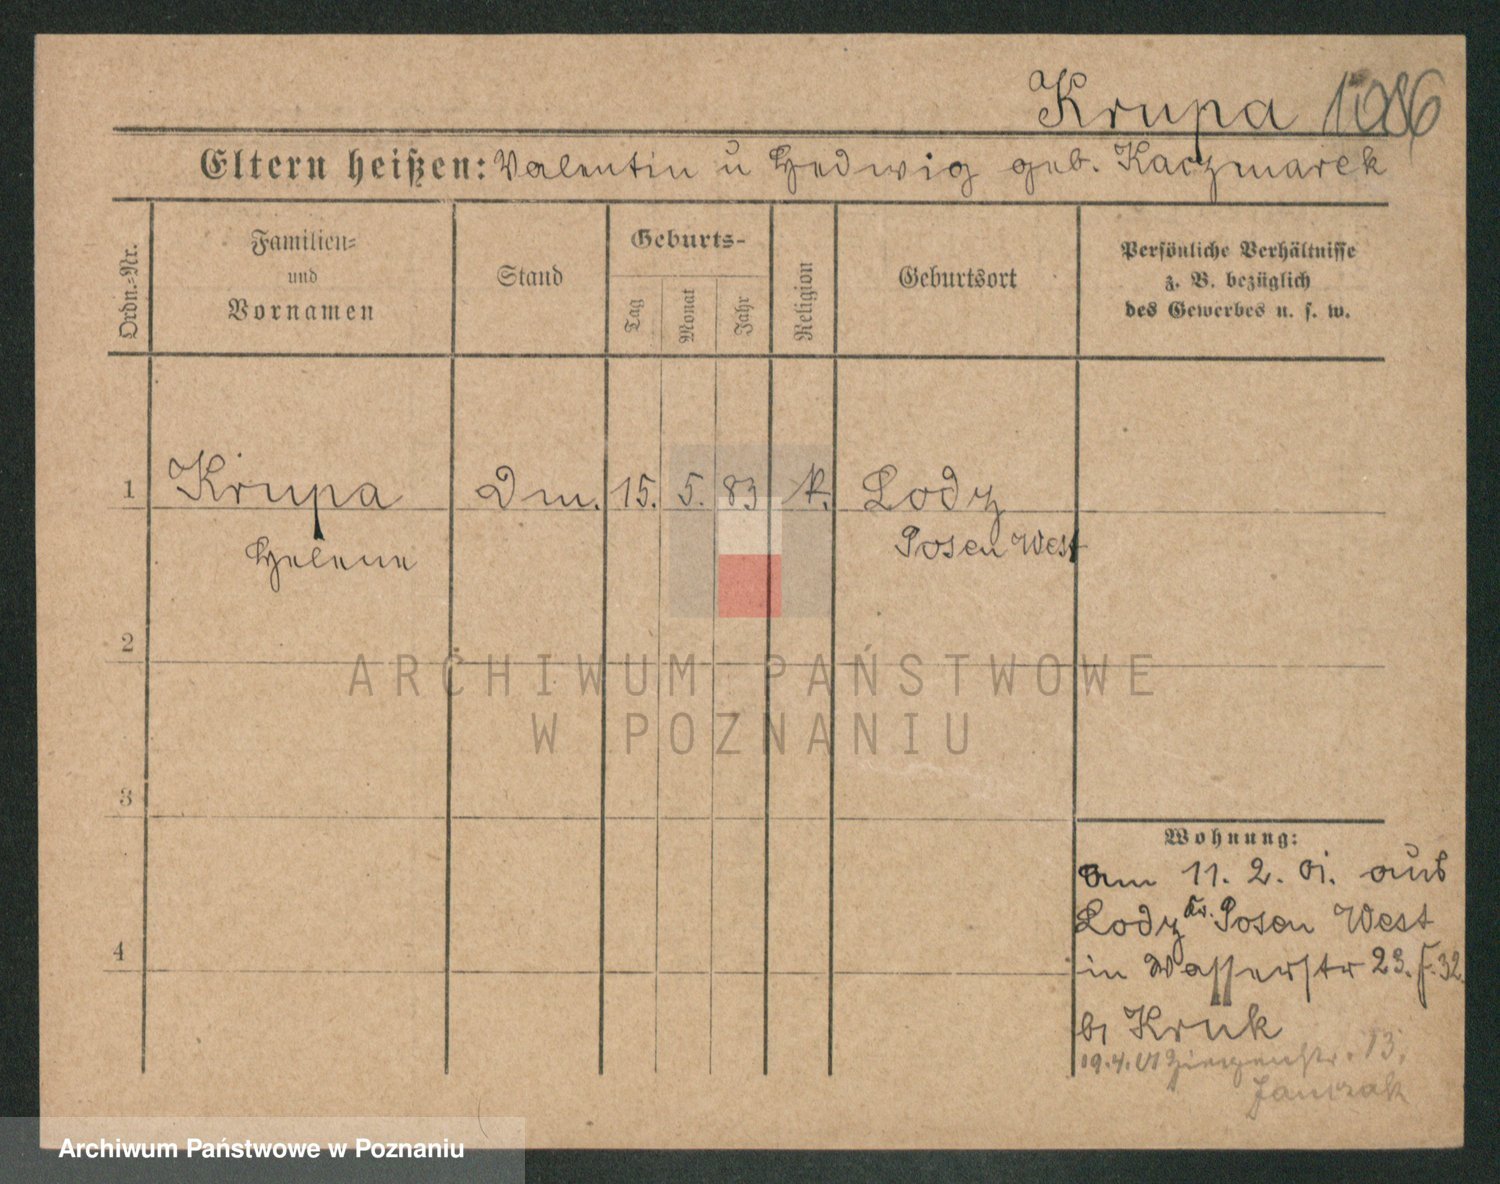 Krupa 1086
Eltern heißen: Valentin u Hedwig geb. Kaczmarek
Ordn.-Nr.
Familien- und Vornamen
Stand
Geburts-
Tag
Monat
Jahr
Religion
Geburtsort
Persönliche Verhältnisse
z. B. bezüglich
des Gewerbes u. s. w.
1 Krupa Dm. 15. 5. 83 k. Lodz
Helene Posen West
2
ARCHIWUM PAŃSTWOWE
W POZNANIU
3
Wohnung:
am 11. 2. 01. aus
Lodz Kr. Posen West
4
in Wasserstr 23. 32
bei Kruk
19.4.01 Ziegenstr. 13.
Janczak
Archiwum Państwowe w Poznaniu